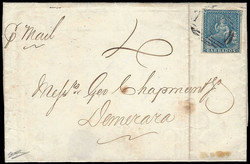 p Mail
4
BARBADOS
Messrs Geo Chapman & Co
Demerara